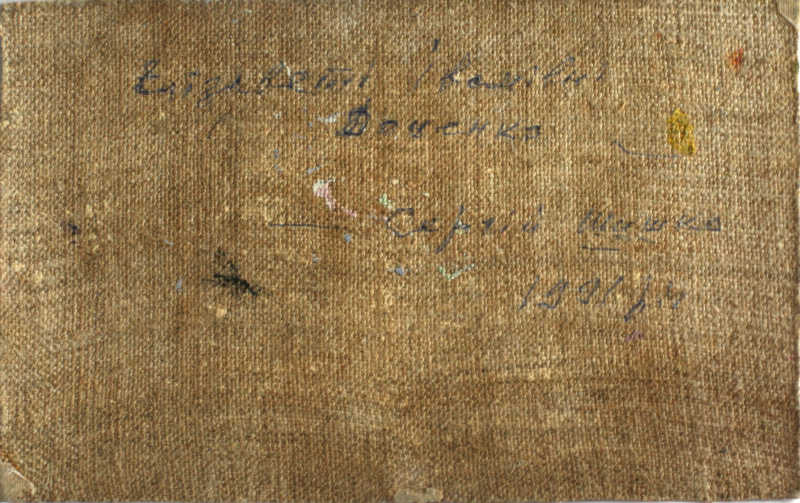 Єлізаветі Іванівні
Доценко
Сергій Шишко
1991 р.